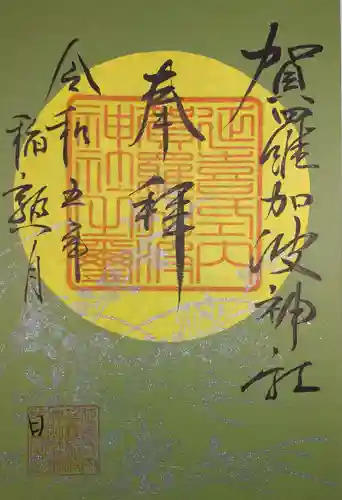 賀羅加波神社
奉拝
延喜式内
賀羅加波
神社之璽
令和五年
稲熟月
日